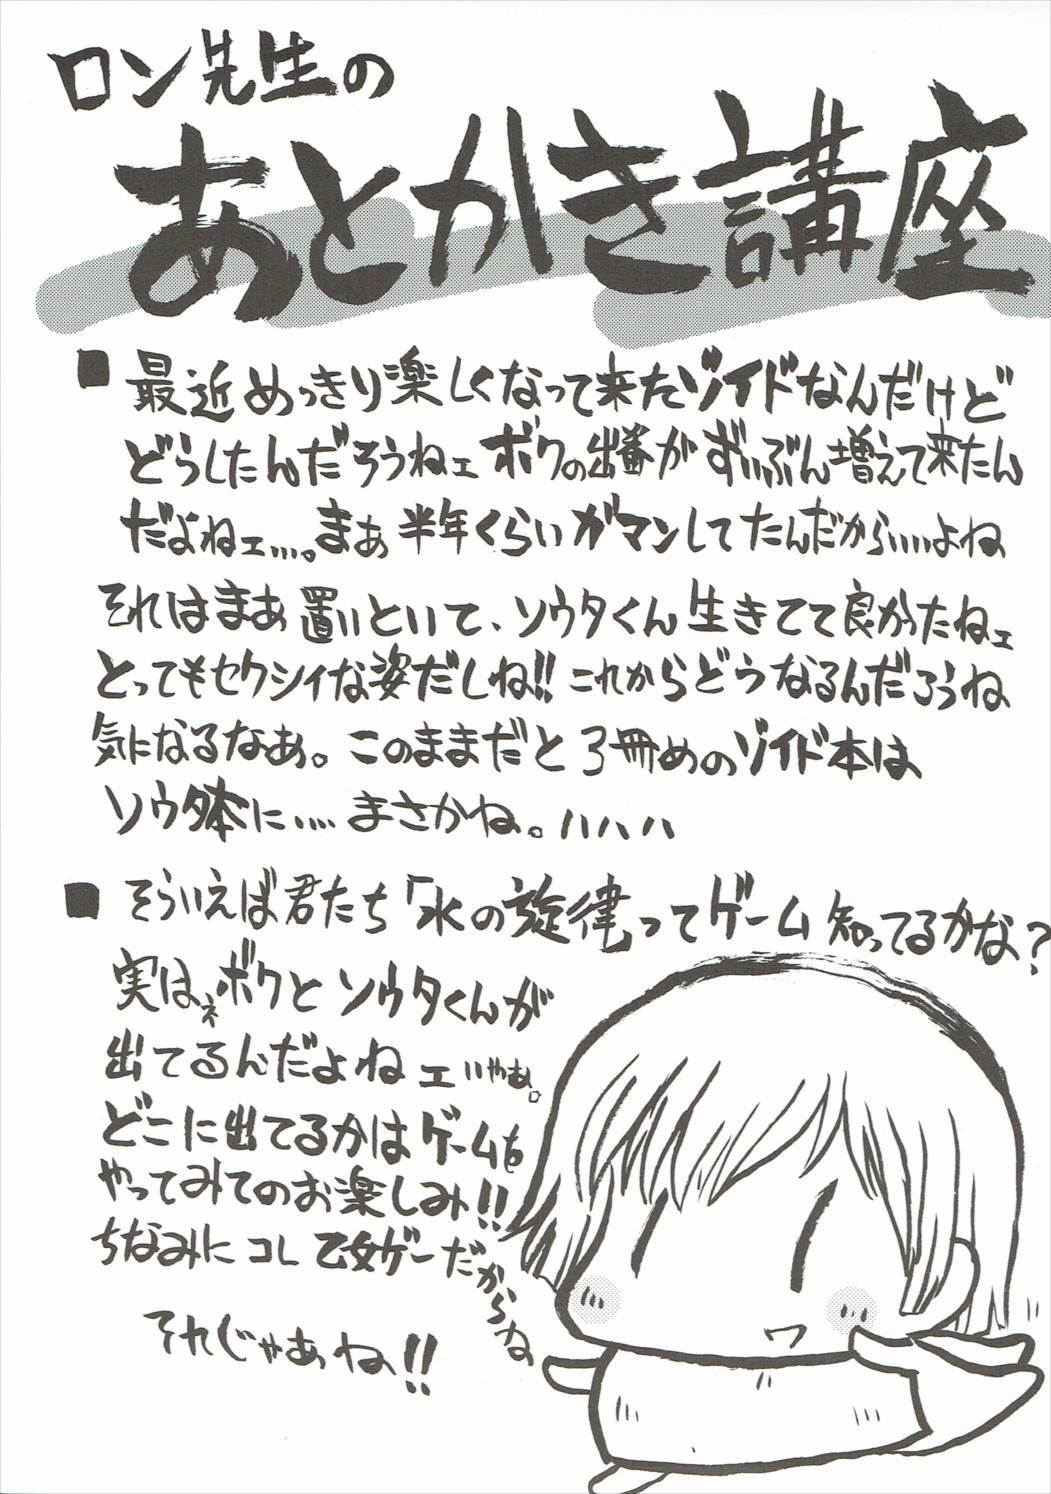 ロン先生の
あとかき講座
■最近めっきり楽しくなって来たゾイドなんだけど
どうしたんだろうねェ ボクの出番がずいぶん増えて来たん
だよねェ…。まぁ半年くらいガマンしてたんだから…よね
それはまあ置いといて、ソウタくん生きてて良かったねェ
とってもセクシィな姿だしね!! これからどうなるんだろうね
気になるなあ。このままだと3冊めのゾイド本は
ソウタ本に…まさかね。ハハハ
■そういえば君たち「水の旋律」ってゲーム知ってるかな?
実はネ ボクとソウタくんが
出てるんだよねェいやあ。
どこに出てるかはゲームを
やってみてのお楽しみ!!
ちなみにコレ乙女ゲーだからね
それじゃあね!!